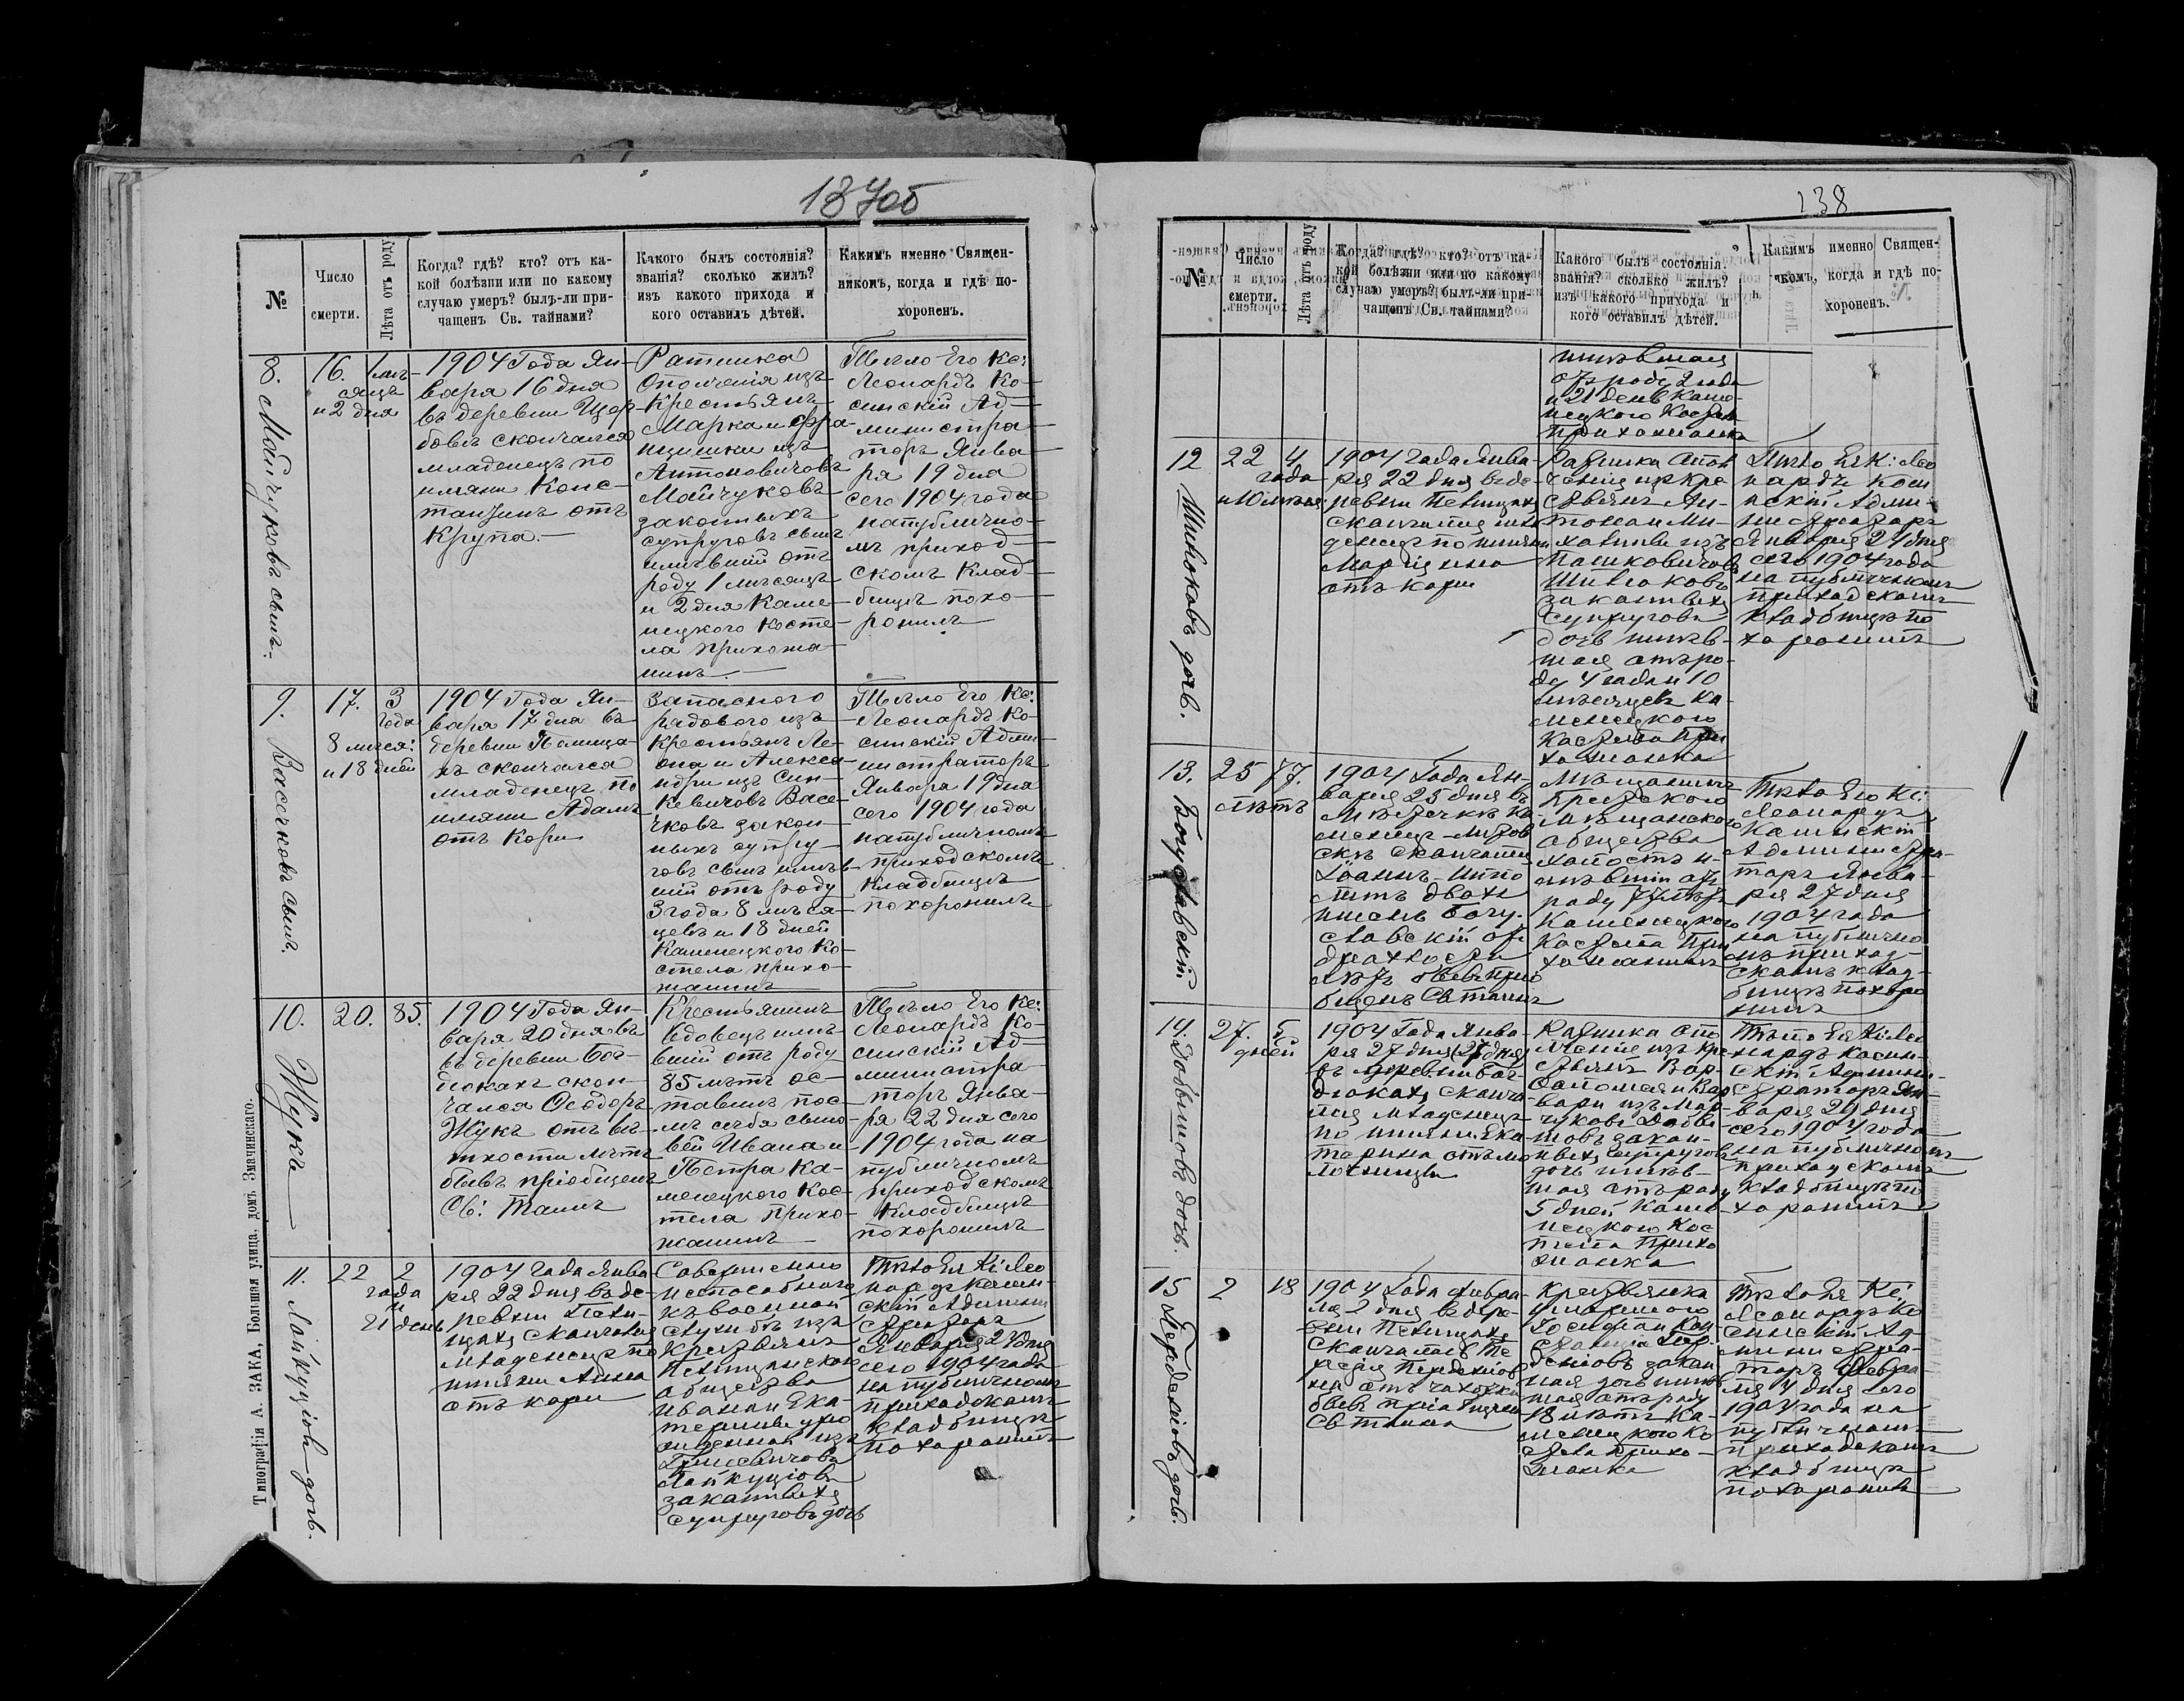 13700
№
Число смерти.
Лѣта отъ роду
Когда? гдѣ? кто? отъ ка-
кой болѣзни или по какому
случаю умеръ? былъ-ли при-
чащенъ Св. тайнами?
Какого былъ состоянія?
званія? сколько жилъ?
изъ какого прихода и
кого оставилъ дѣтей.
Какимъ именно Священ-
никомъ, когда и гдѣ по-
хороненъ.
8. Мойчуковъ сынъ.
16.
1 мѣ-
сяцъ
и 2 дня
1904 Года Ян-
варя 16 дня
въ деревни Щер-
бовѣ скончался
младенецъ по
имяни Конс-
тантинъ отъ
Крупа.
Ратника
Ополченія изъ
Крестьянъ
Марка и Фра-
нцишки изъ
Антоновичовъ
Мойчуковъ
законныхъ
супруговъ сынъ
имѣвшій отъ
роду 1 мѣсяцъ
и 2 дня Каме-
нецкого Косте-
ла прихожа-
нинъ
Тѣло Его Кс:
Леонардъ Ко-
синскій Ад-
министра-
торъ Янва-
ря 19 дня
сего 1904 года
на публично-
мъ приход-
скомъ Клад-
бищѣ похо-
ронилъ
9. Васечковъ сынъ.
17.
3
года
8 мѣся:
и 18 дней
1904 Года Ян-
варя 17 дня въ
деревни Пелища-
хъ скончался
младенецъ по
имяни Адамъ
отъ Кори
Запасного
рядового изъ
Крестьянъ Ле-
она и Алекса-
ндри изъ Син-
кевичовъ Васе-
чковъ закон-
ныхъ супру-
говъ сынъ имѣв-
шій отъ роду
3 года 8 мѣся-
цевъ и 18 дней
Каменецкого Ко-
стела прихо-
жанинъ
Тѣло Его Кс:
Леонардъ Ко-
синскій Адми-
нистраторъ
Января 19 дня
сего 1904 года
на публичномъ
приходскомъ
Кладбищѣ
похоронилъ
10. Жукъ
20.
85.
1904 Года Ян-
варя 20 дня въ
въ деревни Бог-
дюкахъ скон-
чался Ѳеодоръ
Жукъ отъ вѣ-
тхости лѣтъ
бывъ пріобщенъ
Св: Таинъ
Крестьянинъ
вдовецъ имѣ-
вшій отъ роду
85 лѣтъ ос-
тавилъ пос-
лѣ себя сыно-
вей Ивана и
Петра Ка-
менецкого Кос-
тела прихо-
жанинъ
Тѣло Его Кс:
Леонардъ Ко-
синскій Ад-
министра-
торъ Янва-
ря 22 дня сего
1904 года на
публичномъ
приходскомъ
Кладбищѣ
похоронилъ
11. Лойкуціовъ дочь.
22
2
года
и
21 день
1904 Года Янва-
ря 22 дня въ де-
ревни Пели-
щахъ скончалась
младенецъ по
имяни Анна
отъ кори
Совершенно
неспособного
къ военной
службѣ изъ
крестьянъ
Пелищанского
общества
Ивана и Ека-
терины уро
жденной изъ
Лойкуціовъ
законныхъ
супруговъ дочь
Тѣло Ея Кс: Лео
нардъ Косин-
скій Админи
страторъ
Января 24 дня
сего 1904 года
на публичномъ
приходскомъ
кладбищѣ
похоронилъ
Типографія А. ЗАКА, Большая улица, домъ Значинскаго.
138
№
Число
смерти.
Лѣта отъ роду
Когда? гдѣ? кто? отъ ка-
кой болѣзни или по какому
случаю умеръ? былъ-ли при-
чащенъ Св. тайнами?
Какого былъ состоянія?
званія? сколько жилъ?
изъ какого прихода и
кого оставилъ дѣтей.
Какимъ именно Священ-
никомъ, когда и гдѣ по-
хороненъ.
имѣвшая
отъ роду 2 года
и 21 день Каме-
нецкого Костела
прихожанка
12 дочь.
22
4
года
и 10 мѣсяц
1904 Года Янва-
ря 22 дня въ де-
ревни Пелищахъ
скончалась мла
денецъ по имяни
Марціяна
отъ кори
Ратника Опол
ченія изъ кре
стьянъ Ан-
тона и Ми-
халины изъ
Пашковичовъ
законныхъ
супруговъ
дочь имѣв-
шая отъ ро-
ду 4 года и 10
мѣсяцевъ Ка-
менецкого
Костела при
хожанка
Тѣло Ея Кс: Лео
нардъ Коси
нскій Адми-
нистраторъ
Января 24 дня
сего 1904 года
на публичномъ
приходскомъ
кладбищѣ по
хоронилъ
13. Богуславскій
25
77.
лѣтъ
1904 Года Ян-
варя 25 дня въ
Мѣстечкѣ Ка-
менецъ-Литов
скѣ скончался
Іоаннъ-Иппо
литъ двохъ
имянъ Богу-
славскій отъ
драхлости
лѣтъ бывъ прио
бщенъ Св Таинъ
Мѣщанинъ
Брестского
Мѣщанского
общества
холостъ и-
мѣвшій отъ
роду 77 лѣтъ
Каменецкого
Костела при
хожанинъ
Тѣло Его Кс:
Леонардъ
Косинскій
Администра-
торъ Янва-
ря 27 дня
1904 года
на публично
мъ приход-
скомъ клад-
бищѣ похоро
нилъ
14. дочь.
27.
5
дней
1904 Года Янва-
ря 27 дня (27 дня)
въ деревни Бог-
дюкахъ сконча-
лась младенецъ
по имяни Ека-
терина отъ мо
лочницы
Ратника Опо
лченія изъ кре
стьянъ Вар-
фоломея и Вар
вары изъ Мар-
чуковъ
законныхъ супруговъ
дочь имѣв-
шая отъ роду
5 дней Каме
нецкого Кос
тела прихо
жанка
Тѣло Ея Кс: Лео
нардъ Косин-
скій Админи-
страторъ Ян-
варя 29 дня
сего 1904 года
на публичномъ
приходскомъ
кладбищѣ по
хоронилъ
15 дочь.
2
18
1904 Года Февра
ля 2 дня въ дере-
вни Пелищахъ
скончалась Те
резія
отъ чахотки
бывъ пріобщена
Св Таинъ
Крестьянка
умершого
законная
дочь имѣв
шая отъ роду
18 лѣтъ Ка-
менецкого Ко
стела прихо-
жанка
Тѣло Ея Кс:
Леонардъ Ко
синскій Ад-
министра-
торъ Февра
ля 4 дня сего
1904 года на
публичномъ
приходскомъ
кладбищѣ
похоронилъ